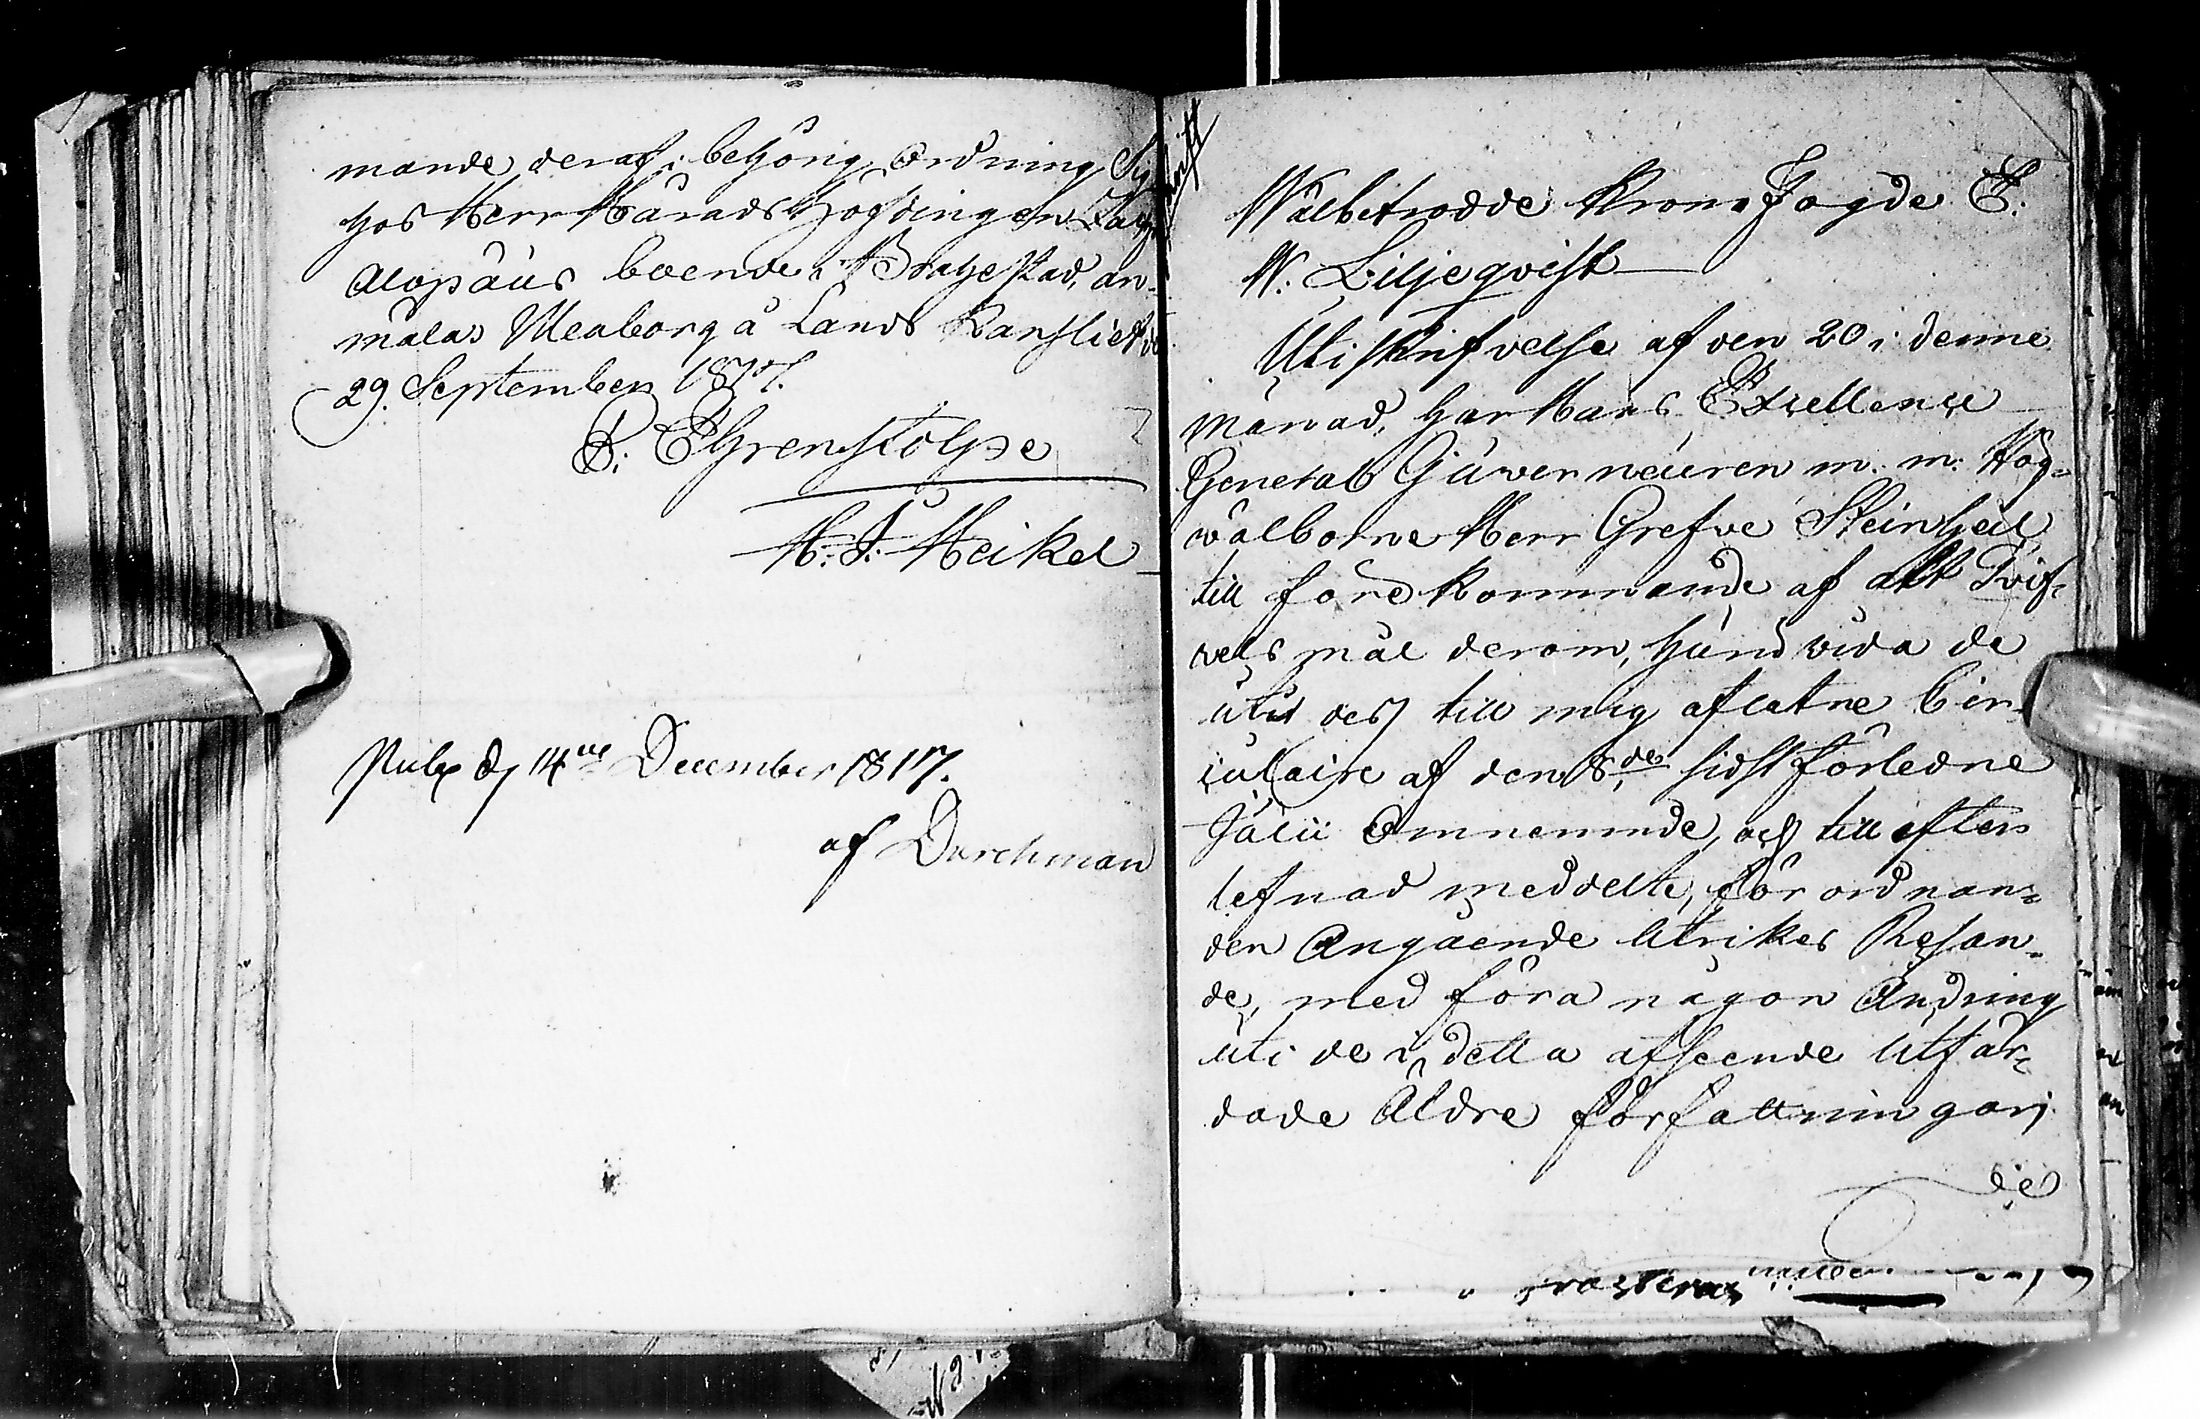 mande deraf i behörig ordning
hos Herr Häradshöfdingen
Alopæus boende i Brahestad, an-
mälas Uleaborg å Lands Kansliet
29. September 1817.
B: Ehrenstolpe
H. J. Heikel
Publ d 14de December 1817.
af Durchman
Wälbetrodde Krono Fogde E.
W. Liljeqvist
Uti skrifvelse af den 20 i denne
månad, har Hans Excellence
General Guverneuren m. m. Hög-
välborne Herr Grefve Steinheil
till förekommande af allt Tvif-
vels mål derom, hurudvida de
uti dess till mig aflatne Cir-
culaire af den 8de sidst förledne
Julii Omnemnde, och till efter
lefnad meddelte, förordnan-
den Angående Utrikes Resan-
de, medföra någon Ändring
uti de i detta afseende Utfär-
dade Äldre författningar;
de